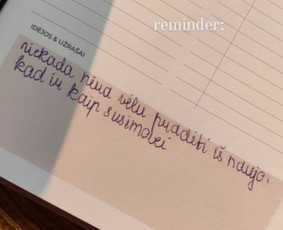 reminder:
IDĖJOS & UŽRAŠAI
niekada nėra vėlu pradėti iš naujo.
kad ir kaip susimovei